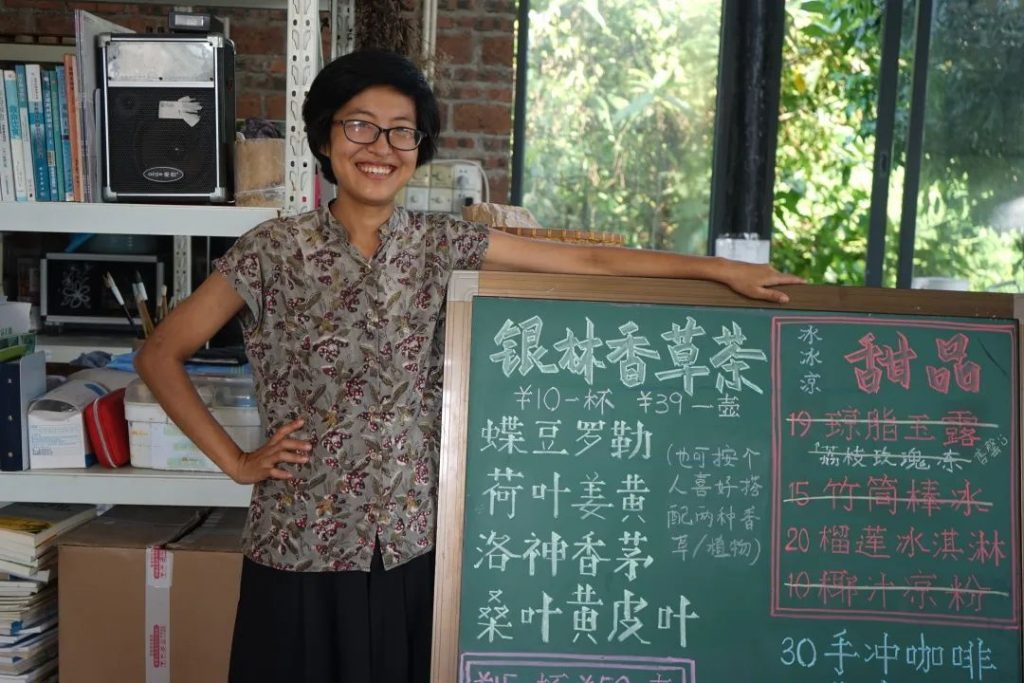 银林香草茶
¥10一杯 ¥39一壶
蝶豆罗勒
荷叶姜黄
洛神香茅
桑叶黄皮叶
(也可按个
人喜好搭
配两种香
草/植物)
冰冰凉
甜品
19 琼脂玉露
荔枝玫瑰冻
15 竹筒棒冰
20 榴莲冰淇淋
10 椰汁凉粉
30 手冲咖啡